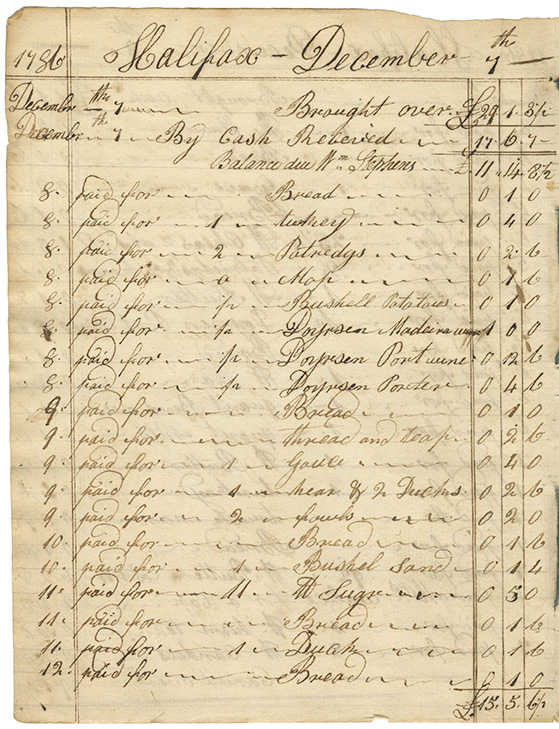 1786 Halifax - December 7th
December 7th Brought over £29 1 8½
December 7th By Cash Recieved 17 6 7
Balance due Wm Stephens £ 11 14 8½
8 paid for Bread 0 1 0
8 paid for 1 turkey 0 4 0
8 paid for 2 Patredys 0 2 6
8 paid for a Mop 0 1 6
8 paid for ½ Bushell Potatows 0 1 0
8 paid for ½ Doyrsen Madeira wine 1 0 0
8 paid for ½ Doyrsen Port wine 0 12 6
8 paid for ½ Doyrsen Porter 0 4 6
9 paid for Bread 0 1 0
9 paid for thread and 0 2 6
9 paid for 1 0 4 0
9 paid for 1 hear & 2 Ducks 0 2 6
9 paid for 2 fowls 0 2 0
10 paid for Bread 0 1 6
10 paid for 1 Bushel Sand 0 1 4
11 paid for 11 lb Sugr 0 5 0
11 paid for Bread 0 1 6
11 paid for 1 Duck 0 1 6
12 paid for Bread 0 1 0
£15 5 6½